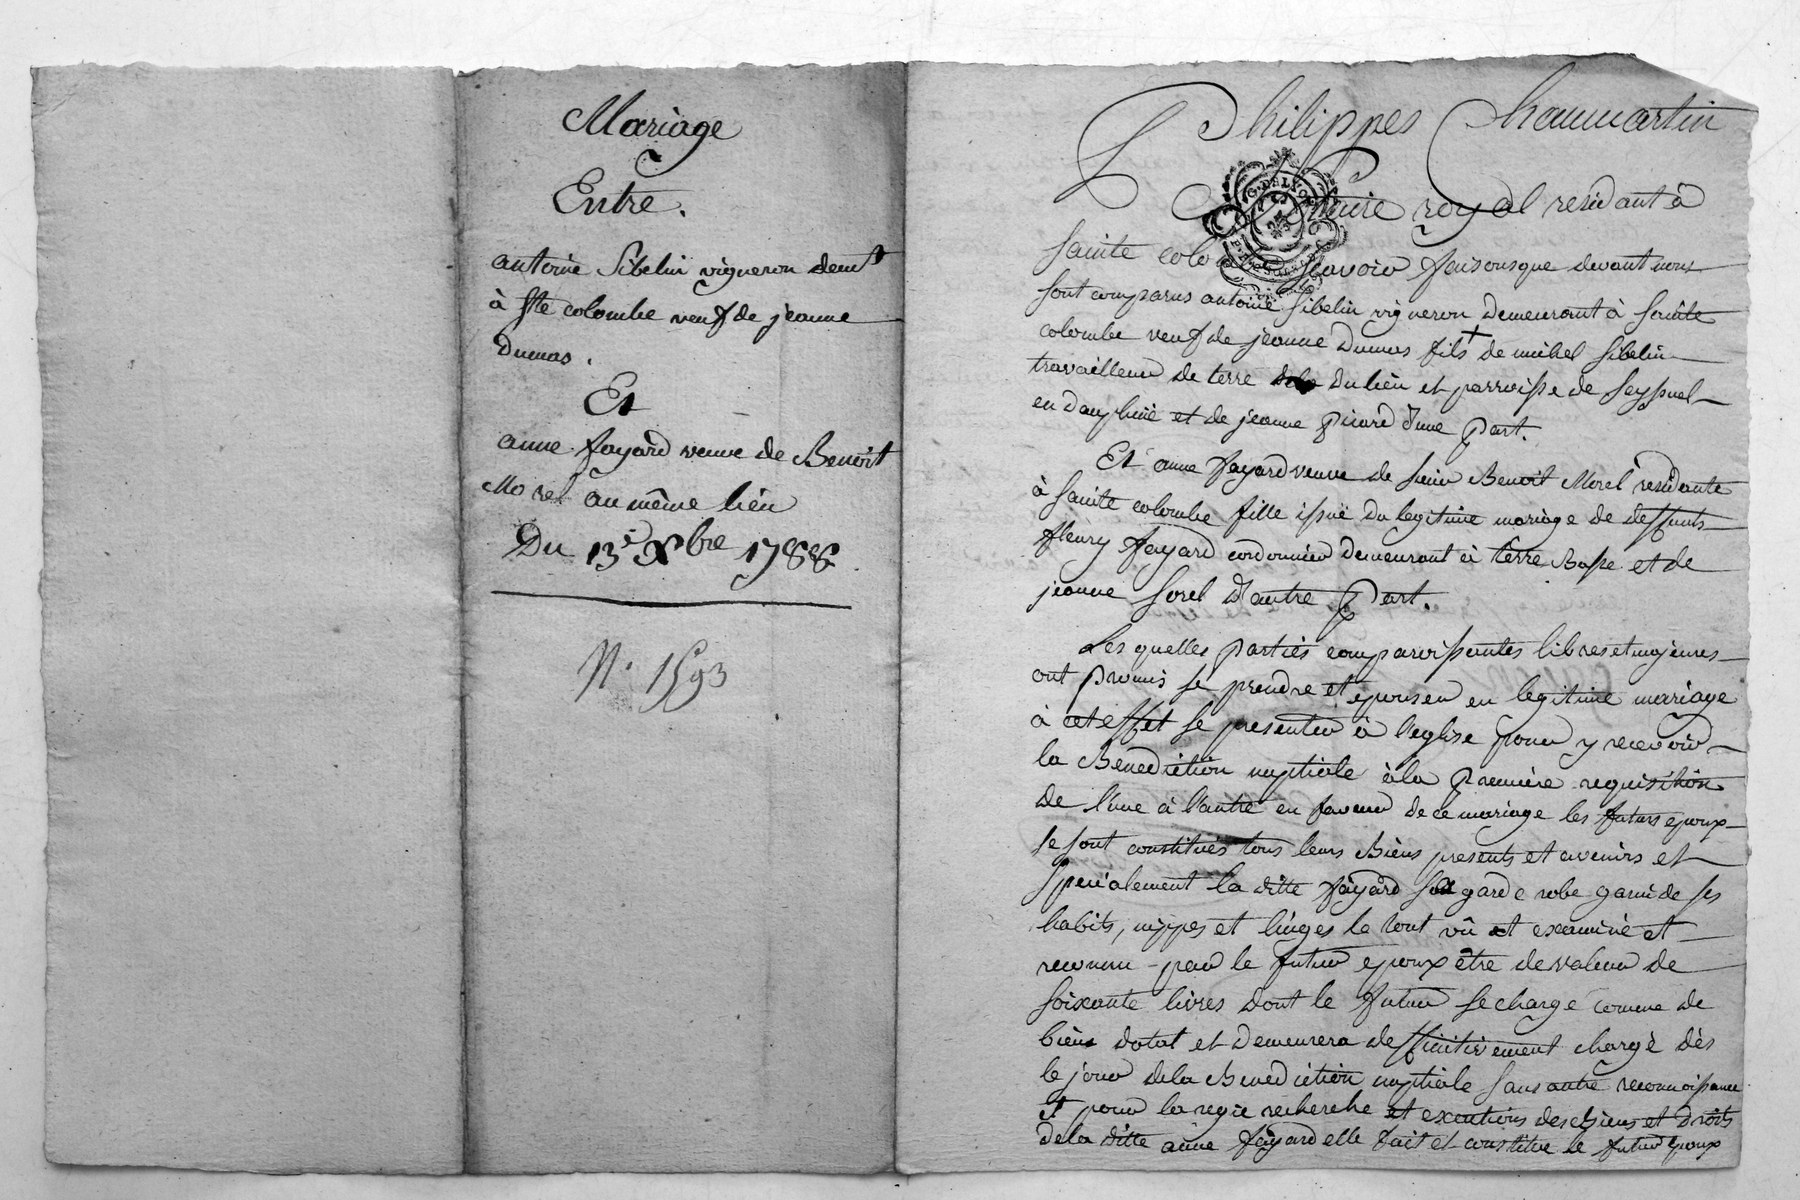 Mariage
Entre.
antoine Sibelin vigneron demt
à Ste colombe veuf de jeanne
Dumas.
Et
anne fayard veuve de Benoit
Morel au même lieu
Du 13e Xbre 1788
N. 1593
Philippes Chaumartin
Notaire royal residant à
Sainte colombe sçavoir faisons que devant nous
sont comparus antoine Sibelin vigneron demeurant à Sainte
colombe veuf de jeanne Dumas fils + de michel Sibelin
travailleur de terre du lieu et parroisse de Seyssuel
en dauphiné et de jeanne picard d'une part.
Et anne fayard veuve de Sieur Benoit Morel residante
à Sainte colombe fille issuë du legitime mariage de deffunts
fleury fayard cordonnier demeurant à terre Basse et de
jeanne Sorel d'autre part.
Les quelles parties comparoissantes libres et majeures
ont promis se prendre et epouser en legitime mariage
à cet effet se presenter à l'eglise pour y recevoir
la Benediction nuptiale à la premiere requisition
de l'une à l'autre en faveur de ce mariage les futurs epoux
se sont constitués tous leurs Biens presents et avenirs et
specialement la ditte fayard sa garde robe garni de ses
habits, nippes et linges le tout vû et examiné et
reconnu par le futur epoux être de valeur de
soixante livres dont le futur se charge comme de
biens dotal et demeurera deffinitivement chargé dès
le jour de la Benediction nuptiale sans autre reconnoissance
et pour la regie recherche et exactions des biens et droits
de la ditte anne fayard elle fait et constitue le futur epoux